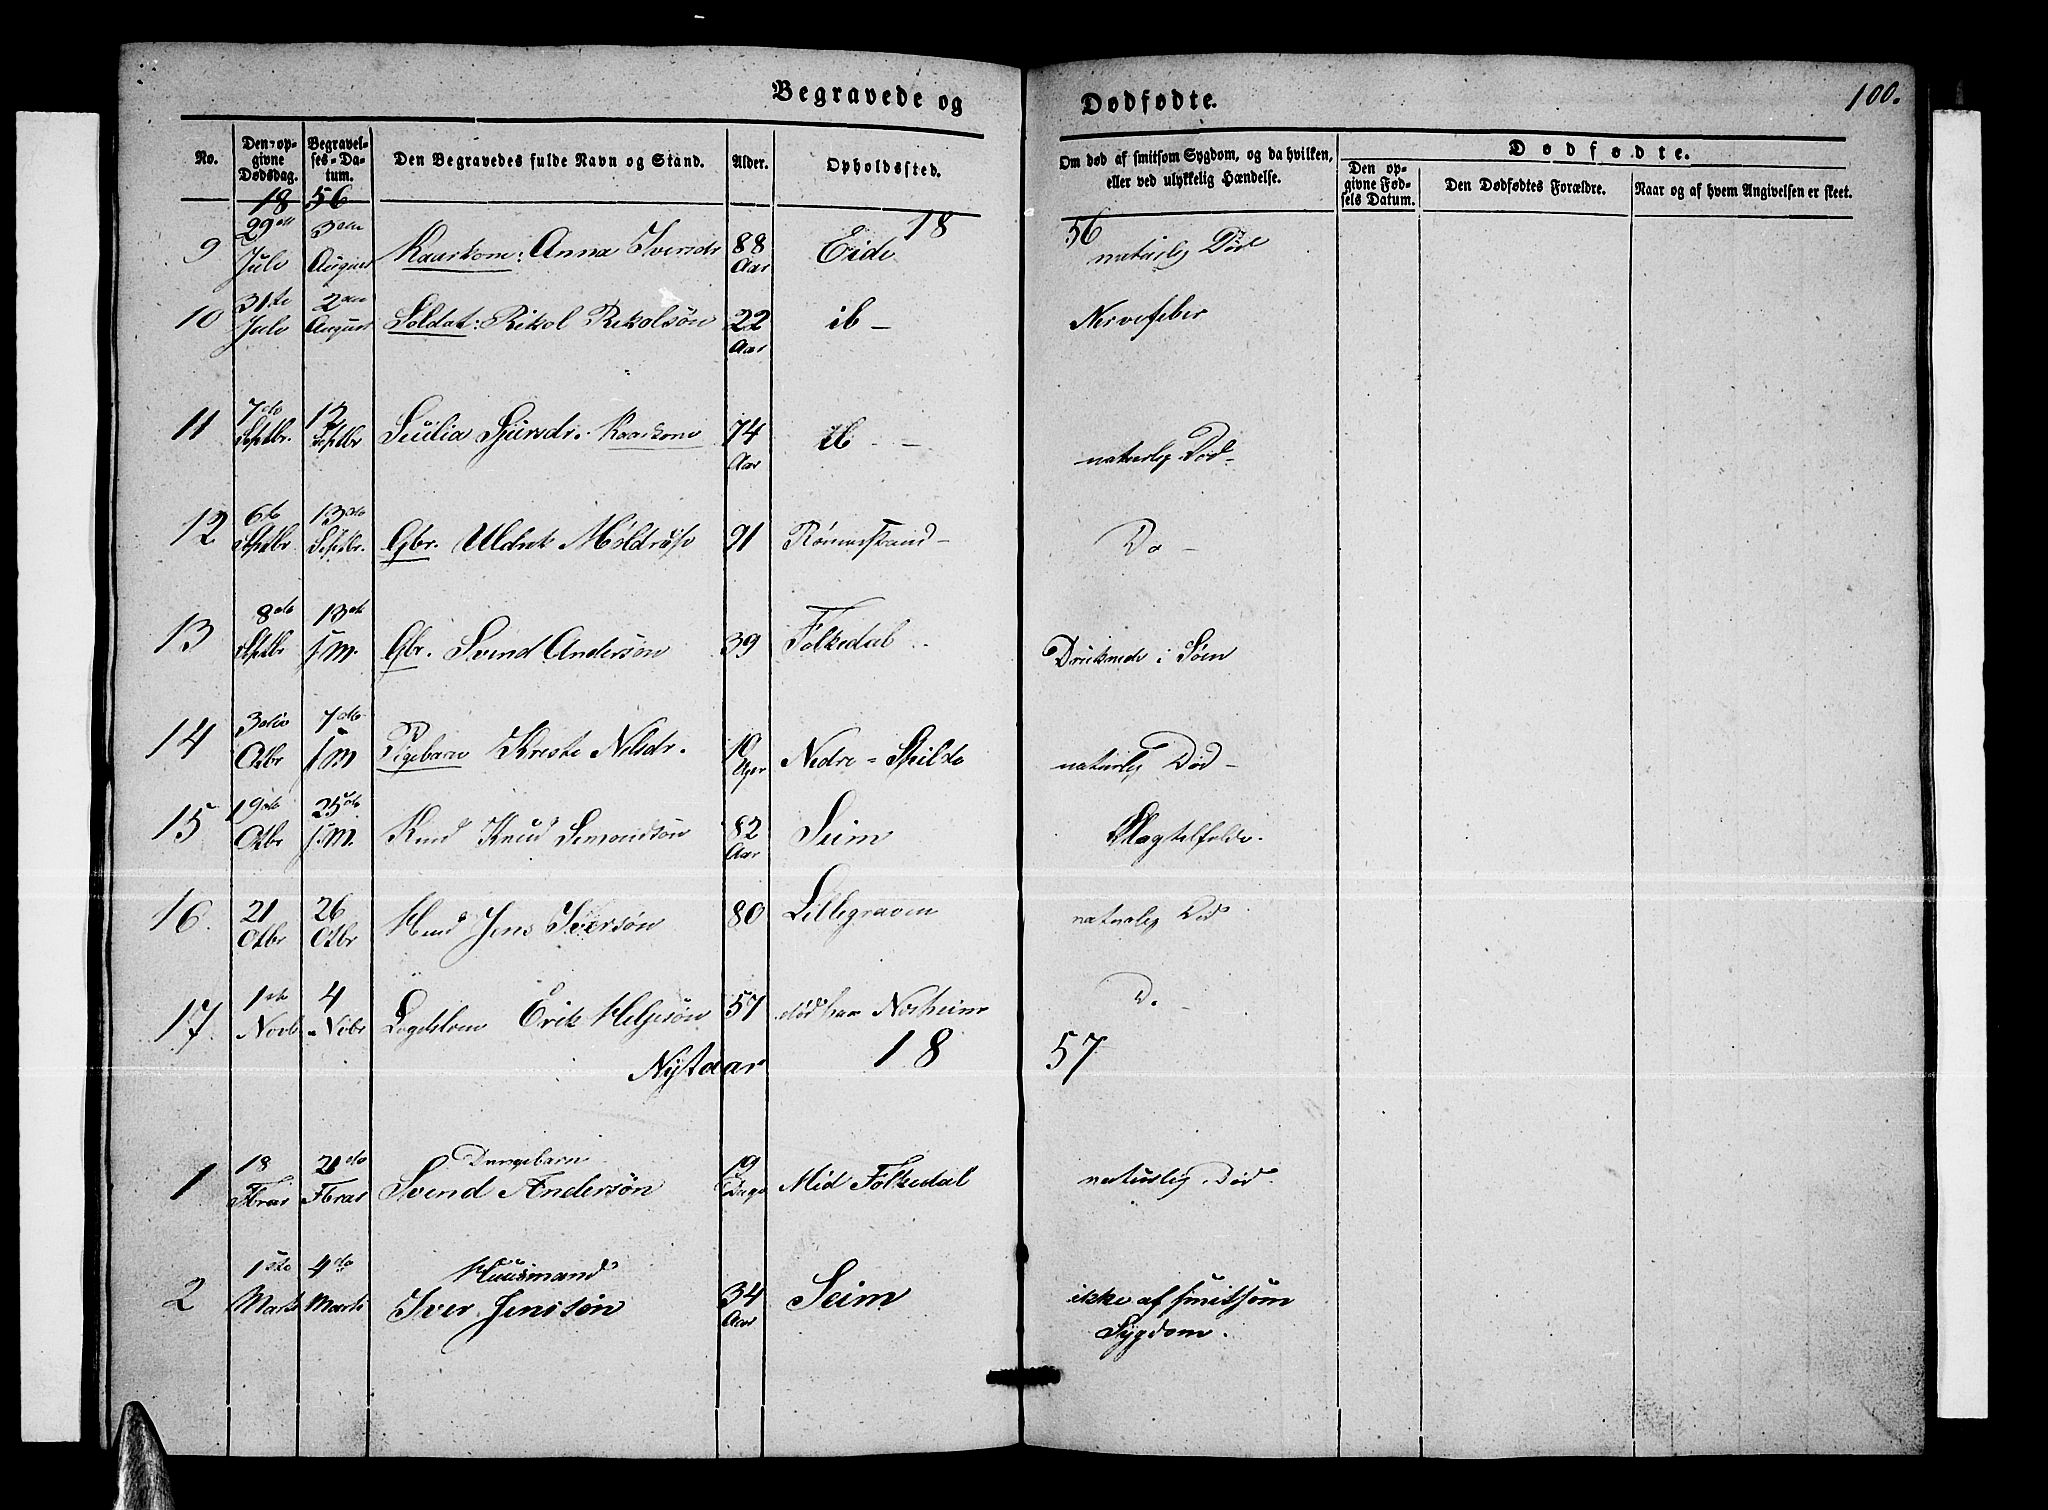 Begravede og
Dødfødte.
100.
No.
Den opgivne Dødsdag.
Begravelses-Datum.
Den Begravedes fulde Navn og Stand.
Alder.
Opholdssted.
Om død af smitsom Sygdom, og da hvilken, eller ved ulykkelig Hændelse.
Dødfødte.
Den opgivne Fødsels Datum.
Den Dødfødtes Forældre.
Naar og af hvem Angivelsen er skeet.
18 56
18 56
9 29de Juli 3die August Kaarkone: Anna Iversdr 88 Aar Eide naturlig Død
10 31te Juli 2den August Soldat: Rikol Rikolsøn 22 Aar ib - Nervefeber
11 7de Septbr. 12 Septbr Sicilia Sjursdr. Kaarkone 74 Aar ib - naturlig Død -
12 6te Septbr 13de Septbr. Gbr. 91 Do -
13 8de Septbr 13de s.M. Gbr. Svend Andersøn 39 Folkedal Druknede i Søen
14 3die Octbr 7de s.M Pigebarn Kreste Nilsdr. 10 Uger Nedre = Skilde naturlig Død -
15 19de Octbr 25de s.M. Knud Simondsøn 82 Aar Seim Slagtilfelde.
16. 21 Octbr 26 Octbr Jens Iversøn 80 Lillegraven naturlig Død
17. 1ste Novb 4 Nobr Erik Helgesøn 57 Norheim D. -
Nytaar 18 57
1 18 Fbrar 21de Fbrar Drengebarn Svend Andersøn 19 Dage Mid Folkedal naturlig Død.
2 1ste Marts 4de Marts Huusmand Iver Jenssøn 34 Aar Seim ikke af smitsom
Sygdom.